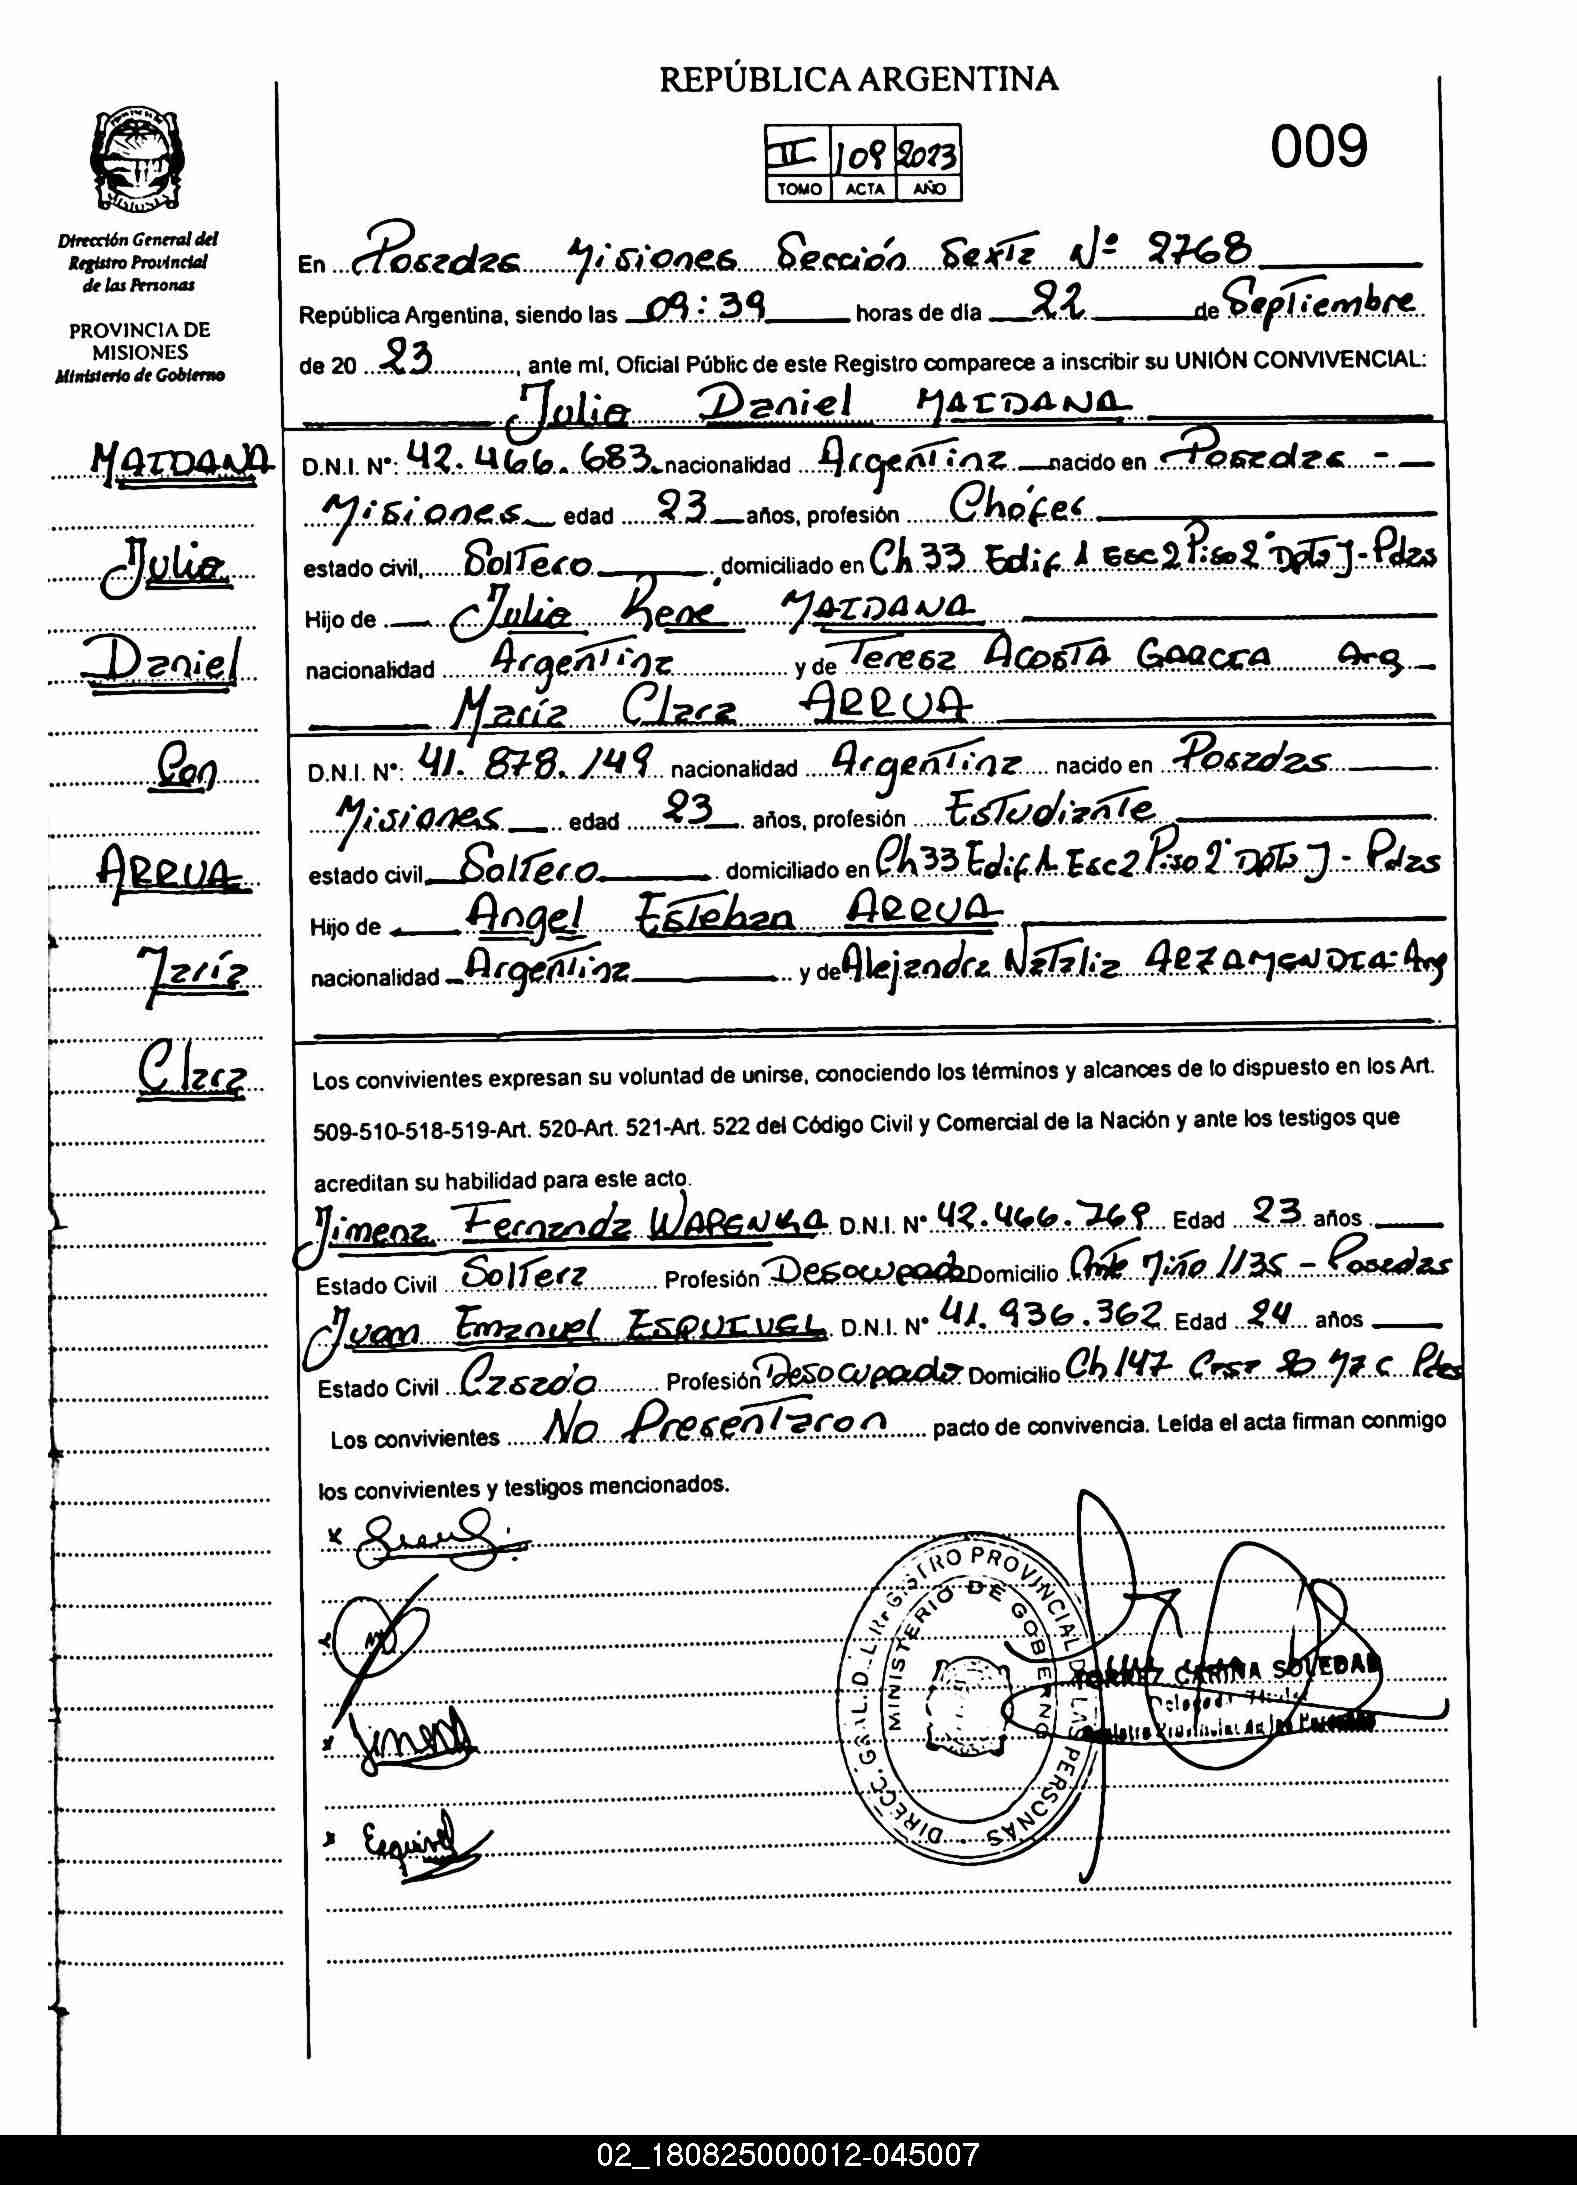 REPÚBLICA ARGENTINA
009
II 109 2023
TOMO ACTA AÑO
Dirección General del
Registro Provincial
de las Personas
PROVINCIA DE
MISIONES
Ministerio de Gobierno
En Posadas Misiones Sección Sexta Nº 2768
República Argentina, siendo las 09:39 horas de día 22 de Septiembre
de 20 23, ante mí, Oficial Públic de este Registro comparece a inscribir su UNIÓN CONVIVENCIAL:
Julio Daniel MAIDANA
MAIDANA
Julio
Daniel
Con
ARRUA
María
Clara
D.N.I. Nº: 42.466.683 nacionalidad Argentina nacido en Posadas -
Misiones edad 23 años, profesión Chófer
estado civil, Soltero domiciliado en Ch 33 Edif A Esc 2 Piso 2° Dpto J - Pdas
Hijo de Julio René MAIDANA
nacionalidad Argentina y de Teresa ACOSTA GARCIA Arg
María Clara ARRUA
D.N.I. Nº: 41.878.149 nacionalidad Argentina nacido en Posadas
Misiones edad 23 años, profesión Estudiante
estado civil Soltero domiciliado en Ch 33 Edif A Esc 2 Piso 2° Dpto J - Pdas
Hijo de Angel Esteban ARRUA
nacionalidad Argentina y de Alejandra Natalia ARZAMENDIA - Arg
Los convivientes expresan su voluntad de unirse, conociendo los términos y alcances de lo dispuesto en los Art.
509-510-518-519-Art. 520-Art. 521-Art. 522 del Código Civil y Comercial de la Nación y ante los testigos que
acreditan su habilidad para este acto.
Jimena Fernanda WARENKA D.N.I. Nº 42.466.769 Edad 23 años
Estado Civil Soltera Profesión Desocupado Domicilio Miño 1135 - Posadas
Juan Emanuel ESQUIVEL D.N.I. Nº 41.936.362 Edad 24 años
Estado Civil Casado Profesión Desocupado Domicilio Ch 147 Casa 20 Mz C Pdas
Los convivientes No Presentaron pacto de convivencia. Leída el acta firman conmigo
los convivientes y testigos mencionados.
Jimena
Esquivel
DIRECC. GRAL. DEL REGISTRO PROVINCIAL DE LAS PERSONAS
MINISTERIO DE GOBIERNO
CARINA SOLEDAD
Registro Provincial de las Personas
02_180825000012-045007